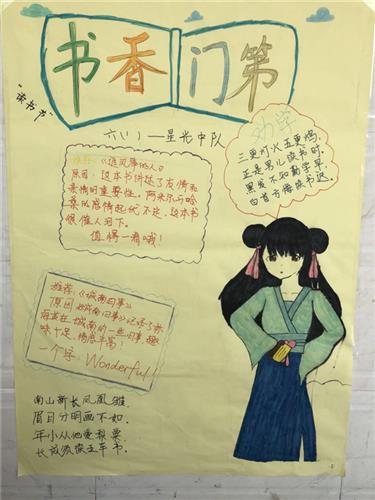 书香门第
"读书节"
六(1)—星光中队
劝学
三更灯火五更鸡,
正是男儿读书时,
黑发不知勤学早,
白首方悔读书迟。
推荐:《追风筝的人》
原因:这本书讲述了友情和
亲情的重要性。阿米尔与哈
桑的感情起伏不定,这本书
很催人泪下。
值得一看哦!
推荐:《城南旧事》
原因:《城南旧事》记述了英
子在城南的一些旧事,趣
味十足,情感丰富!
一个字:Wonderful!
南山新长凤凰雏,
眉目分明画不如。
年小从他爱梨栗,
长成须读五车书。